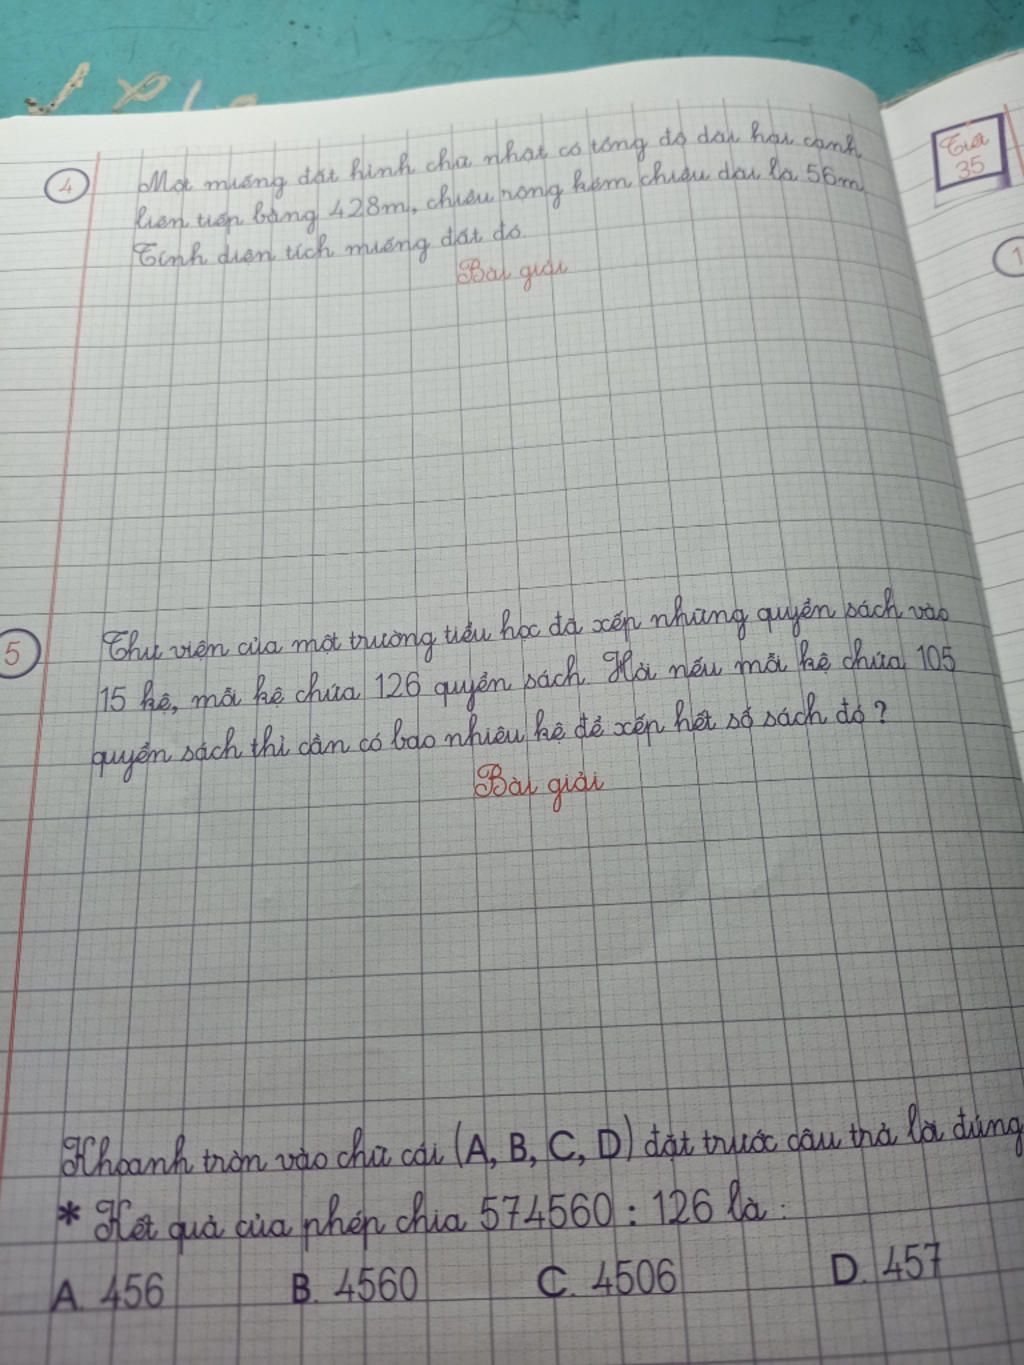 4
Một miếng đất hình chữ nhật có tổng độ dài hai cạnh
liên tiếp bằng 428m, chiều rộng kém chiều dài là 56m
Tính diện tích miếng đất đó.
Bài giải
Tiết
35
1
5
Thư viện của một trường tiểu học đã xếp những quyển sách vào
15 kệ, mỗi kệ chứa 126 quyển sách. Hỏi nếu mỗi kệ chứa 105
quyển sách thì cần có bao nhiêu kệ để xếp hết số sách đó?
Bài giải
Khoanh tròn vào chữ cái (A, B, C, D) đặt trước câu trả lời đúng
* Kết quả của phép chia 574560 : 126 là :
A. 456 B. 4560 C. 4506 D. 457